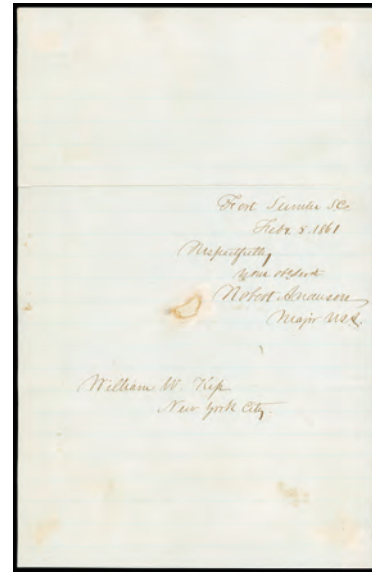 Fort Sumter S.C.
Feby 5. 1861
Respectfully
your obt svt
Robert Anderson
Major USA.
William W. Kip
New York City.